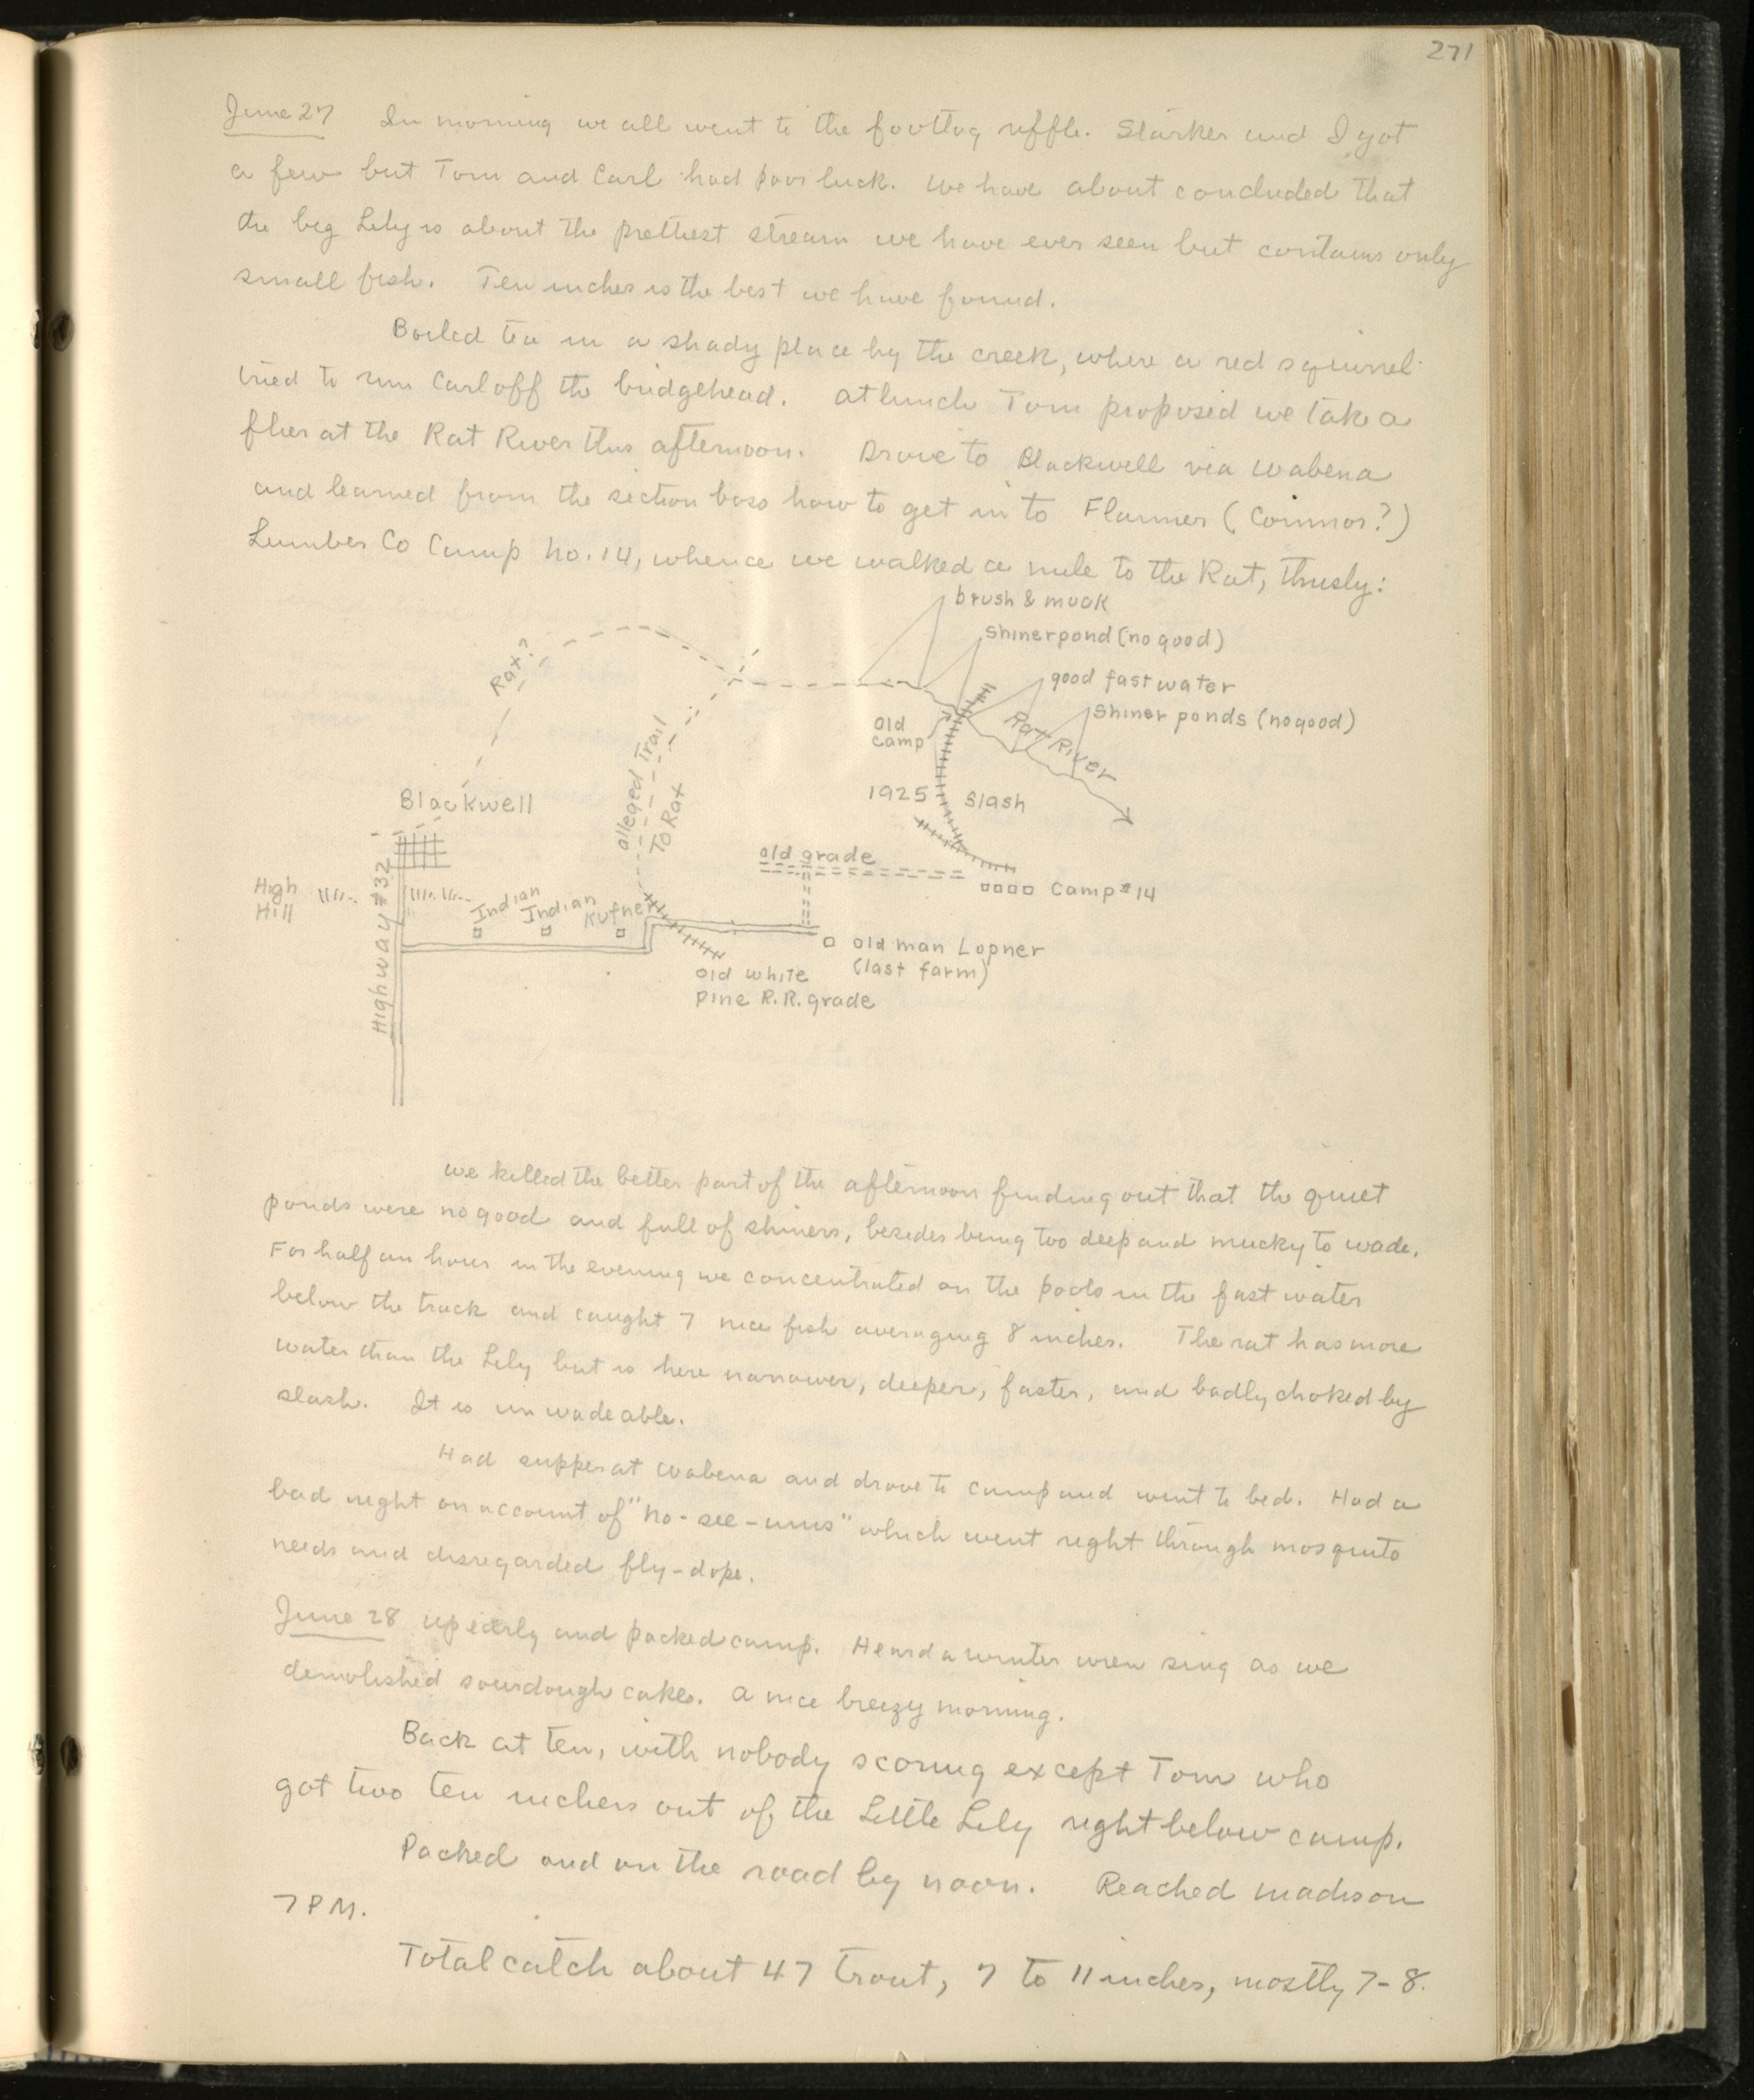 271
June 27 In morning we all went to the footlog riffle. Starker and I got
a few but Tom and Carl had poor luck. We have about concluded that
the big Lily is about the prettiest stream we have ever seen but contains only
small fish. Ten inches is the best we have found.
Boiled tea in a shady place by the creek, where a red squirrel
tried to run Carl off the bridgehead. At lunch Tom proposed we take a
flier at the Rat River this afternoon. Drove to Blackwell via Wabena
and learned from the section boss how to get in to Flanner (Connor?)
Lumber Co Camp No. 14, whence we walked a mile to the Rat, thusly:
brush & muck
Shiner pond (no good)
good fast water
Shiner ponds (no good)
Rat?
Rat River
Old
Camp
alleged Trail
To Rat
Blackwell
1925 Slash
old grade
Camp #14
High
Hill
Highway #32
Indian
Indian
Kufner
old man Lopner
(last farm)
old white
pine R.R. grade
We killed the better part of the afternoon finding out that the quiet
ponds were no good and full of shiners, besides being too deep and mucky to wade.
For half an hour in the evening we concentrated on the pools in the fast water
below the track and caught 7 nice fish averaging 8 inches. The rat has more
water than the Lily but is here narrower, deeper, faster, and badly choked by
slash. It is unwadeable.
Had supper at Wabena and drove to camp and went to bed. Had a
bad night on account of "no-see-ums" which went right through mosquito
nets and disregarded fly-dope.
June 28 Up early and packed camp. Heard a winter wren sing as we
demolished sourdough cakes. A nice breezy morning.
Back at ten, with nobody scoring except Tom who
got two ten inchers out of the Little Lily right below camp.
Packed and on the road by noon. Reached Madison
7 PM.
Total catch about 47 trout, 7 to 11 inches, mostly 7-8.